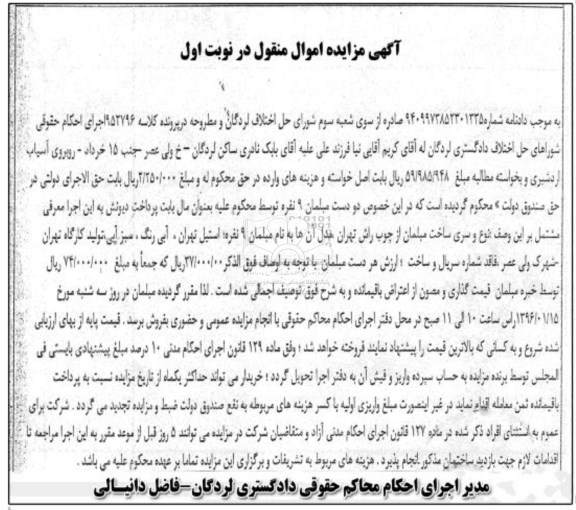 آگهی مزایده اموال منقول در نوبت اول
به موجب دادنامه شماره۹۴۰۹۹۷۳۸۵۲۳۰۱۳۳۵ صادره از سوی شعبه سوم شورای حل اختلاف لردگان و مطروحه درپرونده کلاسه ۹۵۳۷۹۶اجرای احکام حقوقی
شوراهای حل اختلاف دادگستری لردگان له آقای کریم آقایی نیا فرزند علی علیه آقای بابک نادری ساکن لردگان – خ ولی عصر –جنب ۱۵ خرداد - روبروی آسیاب
اردشیری و بخواسته مطالبه مبلغ ۵۹/۹۸۵/۹۴۸ ریال بابت اصل خواسته و هزینه های وارده در حق محکوم له و مبلغ ۲/۲۵۰/۰۰۰ریال بابت حق الاجرای دولتی در
حق صندوق دولت » محکوم گردیده است که در این خصوص دو دست مبلمان ۹ نفره توسط محکوم علیه بعنوان مال بابت پرداخت دیونش به این اجرا معرفی
مشتمل بر این وصف :نوع و سری ساخت مبلمان از چوب راش تهران ،مدل آن ها به نام مبلمان ۹ نفره؛ استیل تهران ، آبی رنگ ، سبز آبی،تولید کارگاه تهران
–شهرک ولی عصر ،فاقد شماره سریال و ساخت ؛ ارزش هر دست مبلمان با توجه به اوصاف فوق الذکر۳۷/۰۰۰/۰۰۰ریال که جمعاً به مبلغ ۷۴/۰۰۰/۰۰۰ ریال
توسط خبره مبلمان قیمت گذاری و مصون از اعتراض باقیمانده و به شرح فوق توصیف اجمالی شده است . لذا مقرر گردیده مبلمان در روز سه شنبه مورخ
۱۳۹۶/۰۱/۱۵راس ساعت ۱۰ الی ۱۱ صبح در محل دفتر اجرای احکام محاکم حقوقی با انجام مزایده عمومی و حضوری بفروش برسد . قیمت پایه از بهای ارزیابی
شده شروع و به کسانی که بالاترین قیمت را پیشنهاد نمایند فروخته خواهد شد ؛ وفق ماده ۱۲۹ قانون اجرای احکام مدنی ۱۰ درصد مبلغ پیشنهادی بایستی فی
المجلس توسط برنده مزایده به حساب سپرده واریز و فیش آن به دفتر اجرا تحویل گردد ؛ خریدار می تواند حداکثر یکماه از تاریخ مزایده نسبت به پرداخت
باقیمانده ثمن معامله اقدام نماید در غیر اینصورت مبلغ واریزی اولیه با کسر هزینه های مربوطه به نفع صندوق دولت ضبط و مزایده تجدید می گردد . شرکت برای
عموم به استثنای افراد ذکر شده در ماده ۱۲۷ قانون اجرای احکام مدنی آزاد و متقاضیان شرکت در مزایده می توانند ۵ روز قبل از موعد مقرر به این اجرا مراجعه تا
اقدامات لازم جهت بازدید ساختمان مذکور انجام پذیرد . هزینه های مربوط به تشریفات و برگزاری این مزایده تماما بر عهده محکوم علیه می باشد .
مدیر اجرای احکام محاکم حقوقی دادگستری لردگان–فاضل دانیـالی